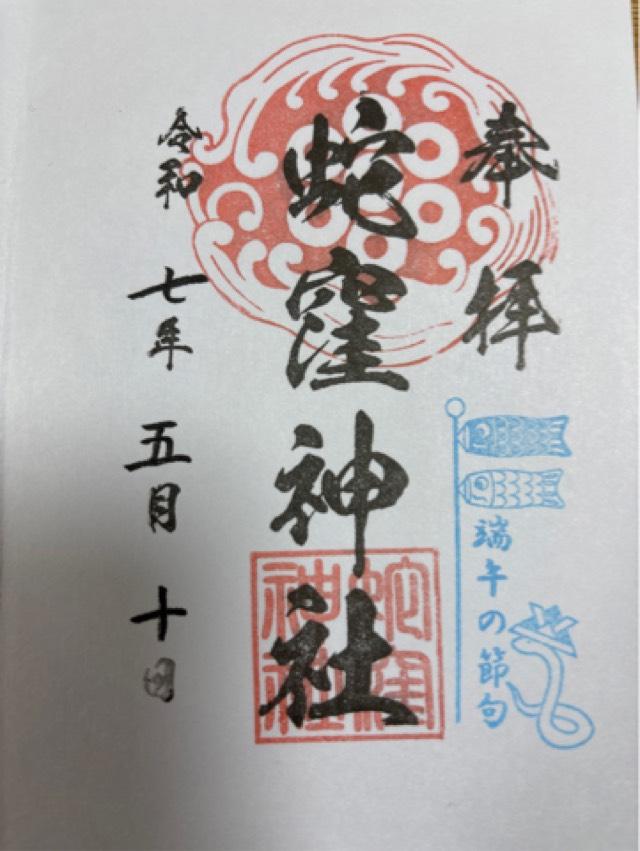 奉拝
端午の節句
蛇窪神社
蛇窪神社
令和七年五月十日